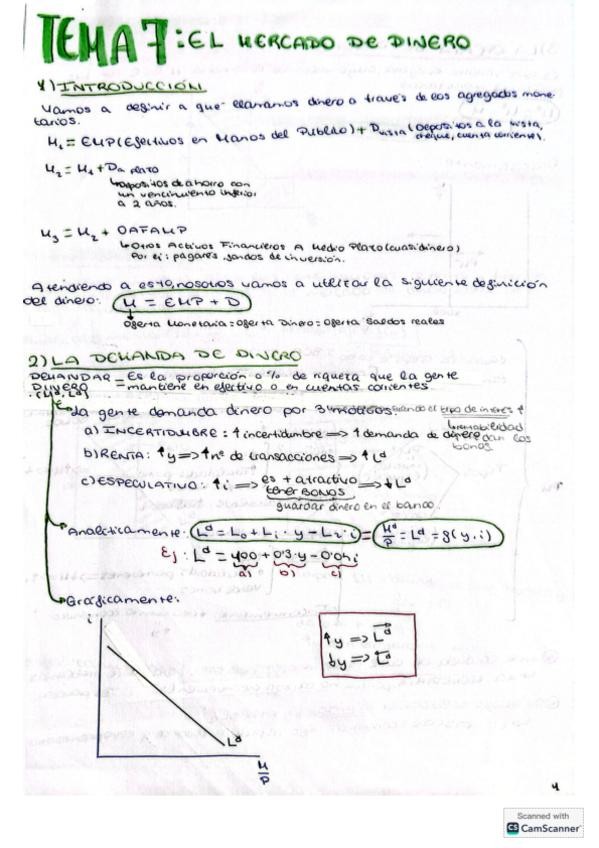 TEMA 7: EL MERCADO DE DINERO
1) INTRODUCCIÓN
Vamos a definir a que llamamos dinero a través de los agregados mone-
tarios.
M₁ = EMP (Efectivos en Manos del Público) + Dvista (Depósitos a la vista,
cheque, cuenta corrientes).
M₂ = M₁ + Da plazo
↳ Depósitos de ahorro con
un vencimiento inferior
a 2 años.
M₃ = M₂ + OAFAMP
↳ Otros Activos Financieros A Medio Plazo (cuasidinero)
Por ej: pagarés, fondos de inversión.
Atendiendo a esto, nosotros vamos a utilizar la siguiente definición
del dinero: M = EMP + D
Oferta Monetaria = Oferta Dinero = Oferta Saldos reales
2) LA DEMANDA DE DINERO
DEMANDAR = Es la proporción o % de riqueza que la gente
DINERO = mantiene en efectivo o en cuentas corrientes.
(Mᵈ, Lᵈ)
La gente demanda dinero por 3 motivos: cuando el tipo de interés ↑
rentabilidad
a) INCERTIDUMBRE: ↑ incertidumbre ⟹ ↑ demanda de dinero dan los
bonos
b) RENTA: ↑y ⟹ ↑ nº de transacciones ⟹ ↑ Lᵈ
c) ESPECULATIVO: ↑i ⟹ es + atractivo ⟹ ↓ Lᵈ
tener BONOS
guardar dinero en el banco.
Analíticamente: Lᵈ = L₀ + L₁ · y - L₂ · i = Mᵈ/P = Lᵈ = g(y, i)
Ej: Lᵈ = 400 + 0'3·y - 0'04i
a) b) c)
Gráficamente:
i
↑y ⟹ Lᵈ→
↓y ⟹ ←Lᵈ
Lᵈ
M/P
1
Scanned with
CS CamScanner